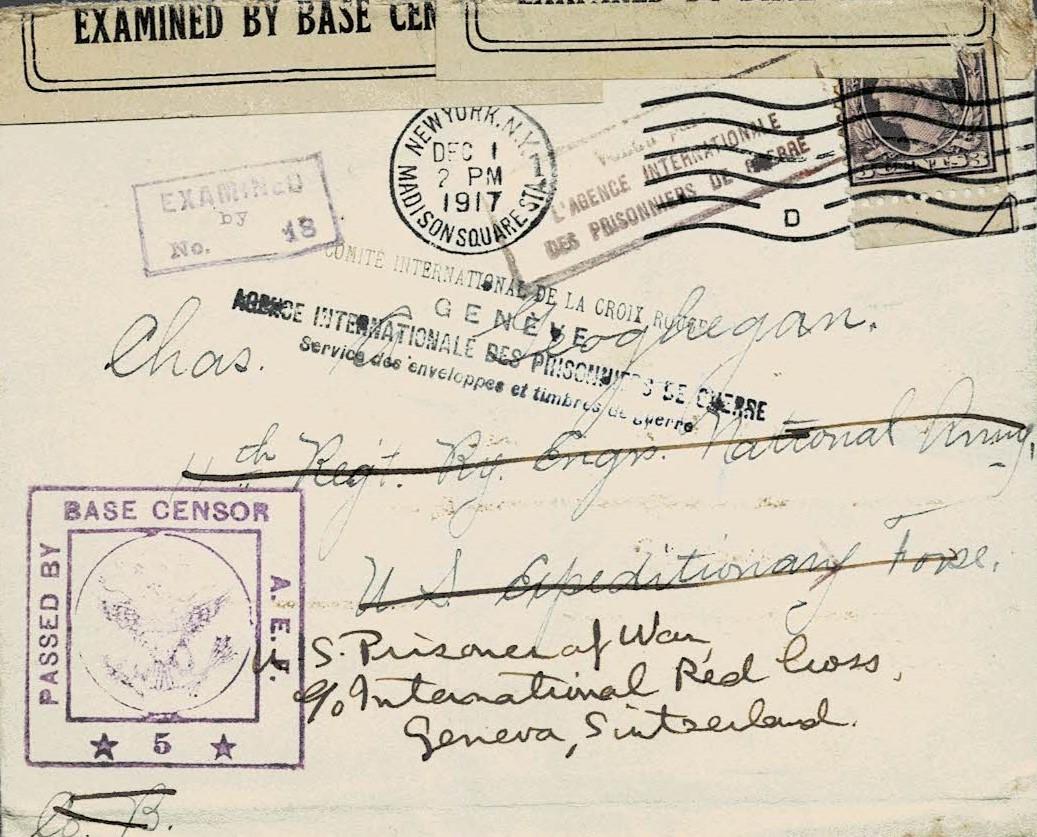 EXAMINED BY BASE CEN
EXAMINED BY BASE
NEW YORK, N.Y.
DEC 1
2 PM
1917
MADISON SQUARE STA.
1
D
CENTS 3
L'AGENCE INTERNATIONALE
DES PRISONNIERS DE GUERRE
EXAMINED
by
No. 18
COMITÉ INTERNATIONAL DE LA CROIX ROUGE
GENÈVE
AGENCE INTERNATIONALE DES PRISONNIERS DE GUERRE
Service des enveloppes et timbres de guerre
Chas. Geoghegan.
11th Regt. Ry. Engrs. National Army,
U S Expeditionary Force.
BASE CENSOR
PASSED BY
A.E.F.
5
U.S. Prisoner of War,
c/o International Red Cross,
Geneva, Switzerland.
Co. B.